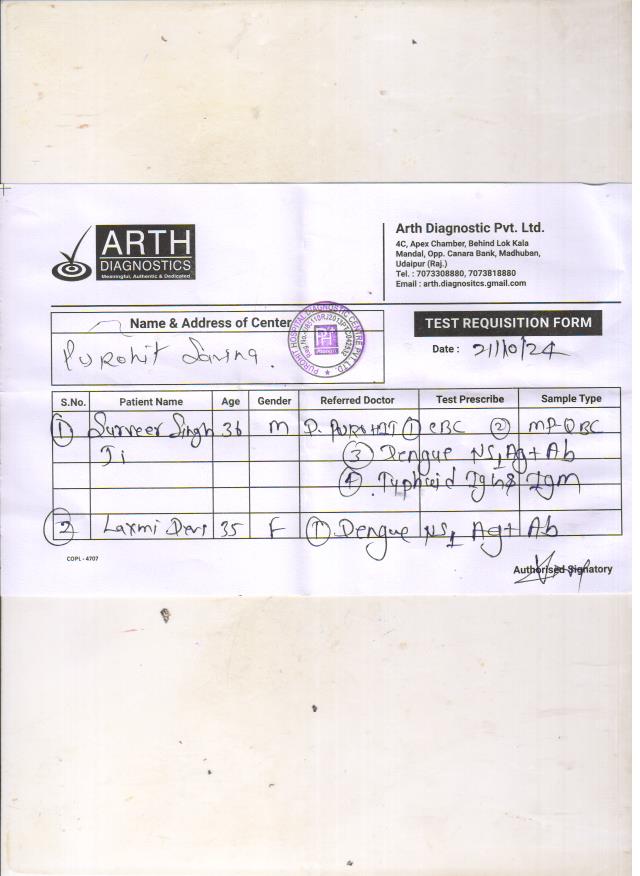 ARTH
DIAGNOSTICS
Meaningful, Authentic & Dedicated.
Arth Diagnostic Pvt. Ltd.
4C, Apex Chamber, Behind Lok Kala
Mandal, Opp. Canara Bank, Madhuban,
Udaipur (Raj.)
Tel. : 7073308880, 7073818880
Email : arth.diagnositcs.gmail.com
Name & Address of Center
PUROHIT HOSPITAL DIAGNOSTIC CENTRE PVT. LTD.
TEST REQUISITION FORM
Purohit
Date : 21/10/24
S.No. Patient Name Age Gender Referred Doctor Test Prescribe Sample Type
1 Surveer Singh 36 M P. PUROHIT 1 CBC 2 MP-QBC
Ji 3 Dengue NS1 Ag + Ab
4 Typhoid IgG & IgM
2 Laxmi Devi 35 F 1 Dengue NS1 Ag + Ab
COPL - 4707
Authorised Signatory